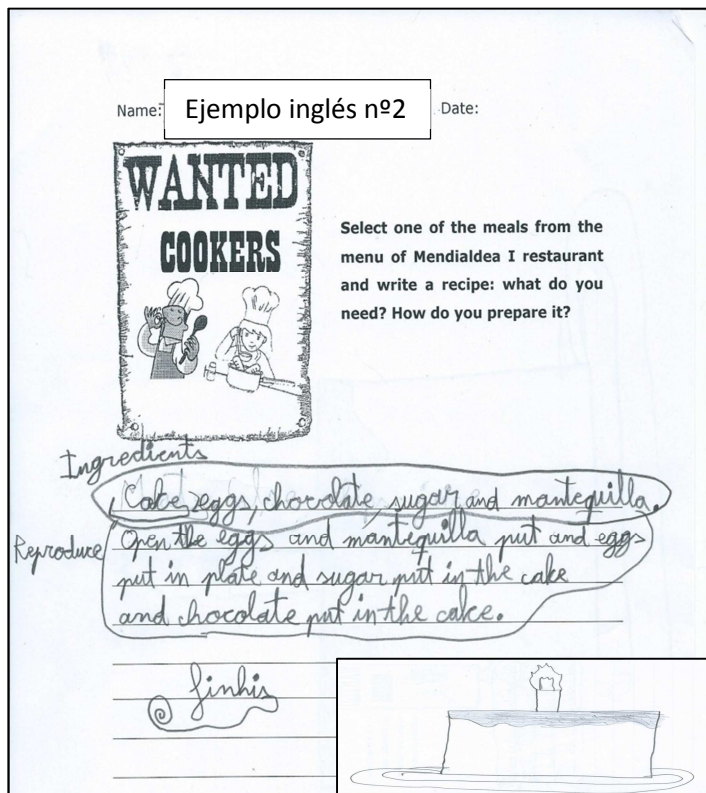 Name:
Ejemplo inglés nº2
Date:
WANTED
COOKERS
Select one of the meals from the
menu of Mendialdea I restaurant
and write a recipe: what do you
need? How do you prepare it?
Ingredients
Cake, eggs, chocolate, sugar and mantequilla.
Reproduce
Open the eggs and mantequilla put and eggs
put in plate and sugar put in the cake
and chocolate put in the cake.
finhis